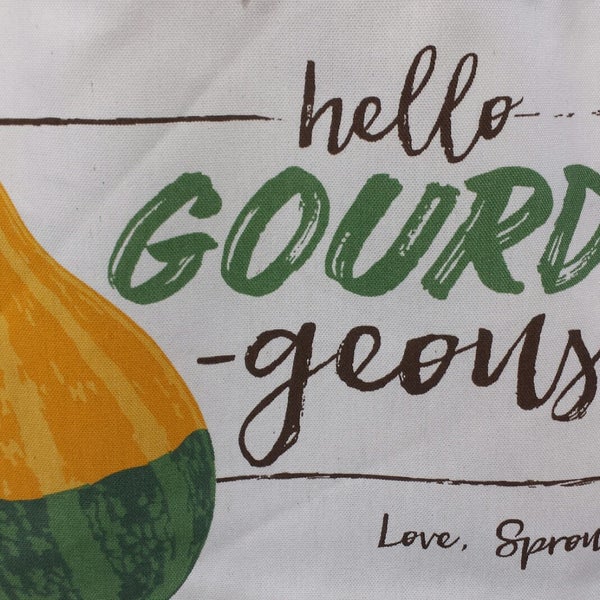 hello
GOURD
-geous
Love, Sprou